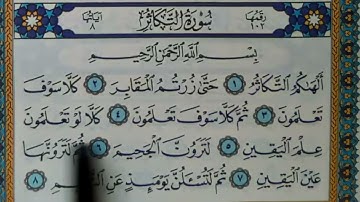 رقمها ١٠٢ سُورَةُ التَّكَاثُرِ آياتها ٨
بِسْمِ ٱللَّهِ ٱلرَّحْمَٰنِ ٱلرَّحِيمِ
أَلْهَىٰكُمُ ٱلتَّكَاثُرُ ١ حَتَّىٰ زُرْتُمُ ٱلْمَقَابِرَ ٢ كَلَّا سَوْفَ
تَعْلَمُونَ ٣ ثُمَّ كَلَّا سَوْفَ تَعْلَمُونَ ٤ كَلَّا لَوْ تَعْلَمُونَ
عِلْمَ ٱلْيَقِينِ ٥ لَتَرَوُنَّ ٱلْجَحِيمَ ٦ ثُمَّ لَتَرَوُنَّهَا
عَيْنَ ٱلْيَقِينِ ٧ ثُمَّ لَتُسْـَٔلُنَّ يَوْمَئِذٍ عَنِ ٨